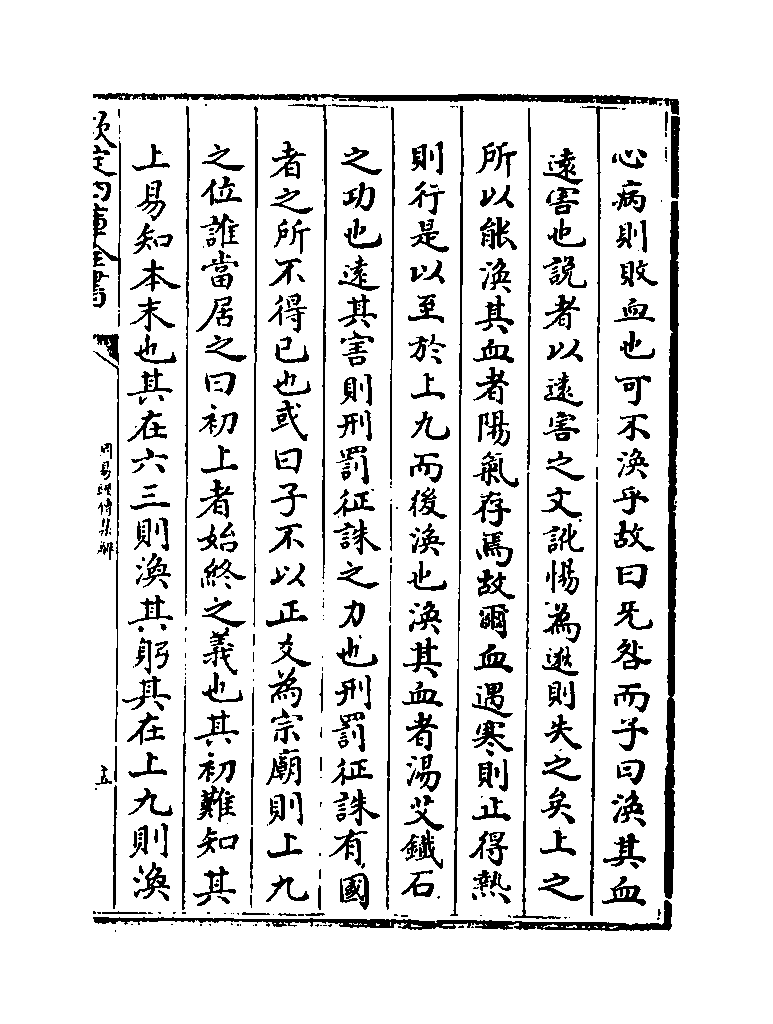 心病則敗血也可不渙乎故曰旡咎而子曰渙其血
遠害也說者以遠害之文訛惕為逖則失之矣上之
所以能渙其血者陽氣存焉故爾血遇寒則止得熱
則行是以至於上九而後渙也渙其血者湯艾鑱石
之功也遠其害則刑罰征誅之力也刑罰征誅有國
者之所不得已也或曰子不以正爻為宗廟則上九
之位誰當居之曰初上者始終之義也其初難知其
上易知本末也其在六三則渙其躬其在上九則渙
欽定四庫全書
周易經傳集解
五